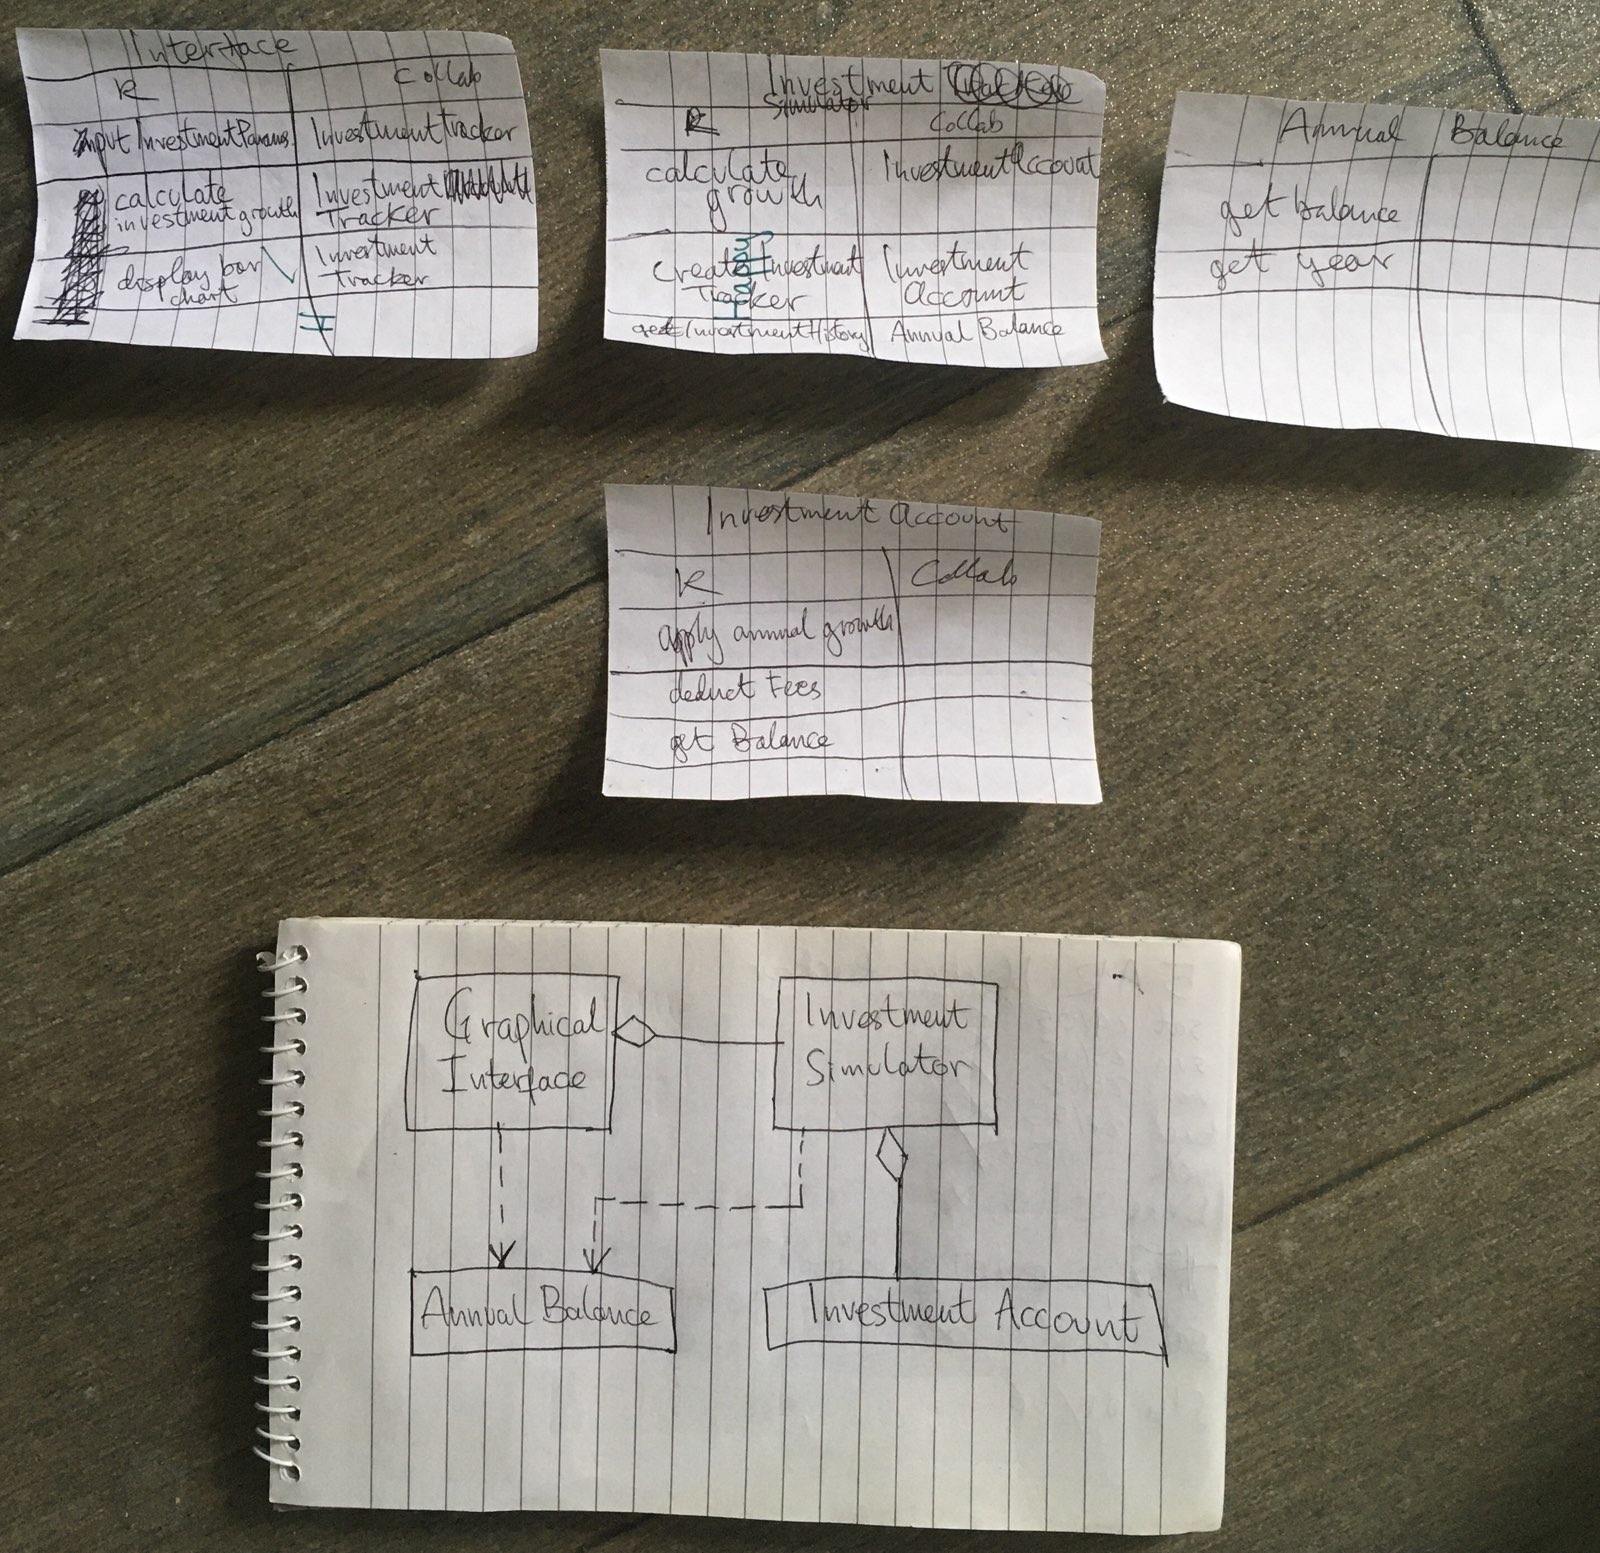 Interface
R Collab
Input InvestmentParams InvestmentTracker
calculate Investment
investment growth Tracker
display bar Investment
chart Tracker
Investment
Simulator
R Collab
calculate InvestmentAccount
growth
create Investment Investment
Tracker Account
get InvestmentHistory Annual Balance
Annual Balance
get balance
get year
Investment Account
R Collab
apply annual growth
deduct Fees
get Balance
Graphical
Interface
Investment
Simulator
Annual Balance
Investment Account